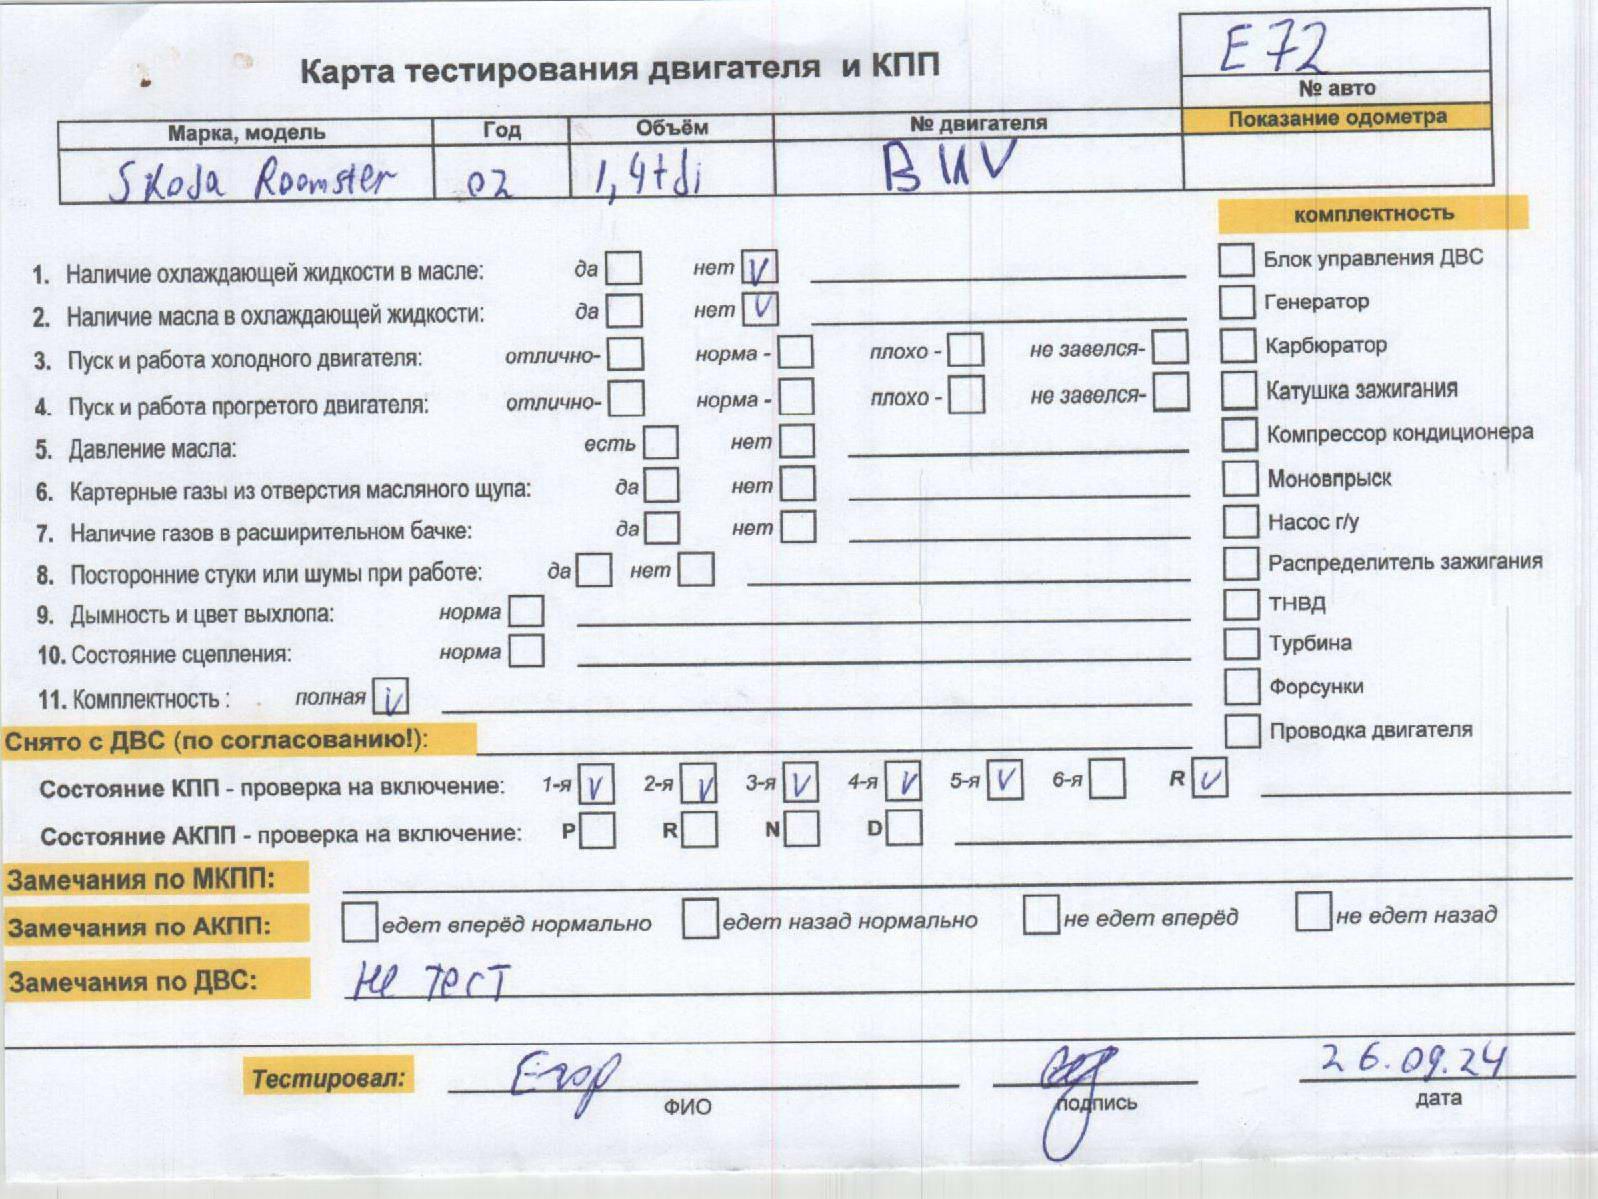 E72
Карта тестирования двигателя и КПП
№ авто
Марка, модель Год Объём № двигателя Показание одометра
Skoda Roomster 02 1,4tdi BUV
комплектность
1. Наличие охлаждающей жидкости в масле: да нет V
Блок управления ДВС
2. Наличие масла в охлаждающей жидкости: да нет V
Генератор
3. Пуск и работа холодного двигателя: отлично- норма - плохо - не завелся-
Карбюратор
4. Пуск и работа прогретого двигателя: отлично- норма - плохо - не завелся-
Катушка зажигания
5. Давление масла: есть нет
Компрессор кондиционера
6. Картерные газы из отверстия масляного щупа: да нет
Моновпрыск
7. Наличие газов в расширительном бачке: да нет
Насос г/у
8. Посторонние стуки или шумы при работе: да нет
Распределитель зажигания
9. Дымность и цвет выхлопа: норма
ТНВД
10. Состояние сцепления: норма
Турбина
11. Комплектность : полная V
Форсунки
Снято с ДВС (по согласованию!):
Проводка двигателя
Состояние КПП - проверка на включение: 1-я V 2-я V 3-я V 4-я V 5-я V 6-я R V
Состояние АКПП - проверка на включение: P R N D
Замечания по МКПП:
Замечания по АКПП: едет вперёд нормально едет назад нормально не едет вперёд не едет назад
Замечания по ДВС: не тест
Тестировал: Егор 26.09.24
ФИО подпись дата